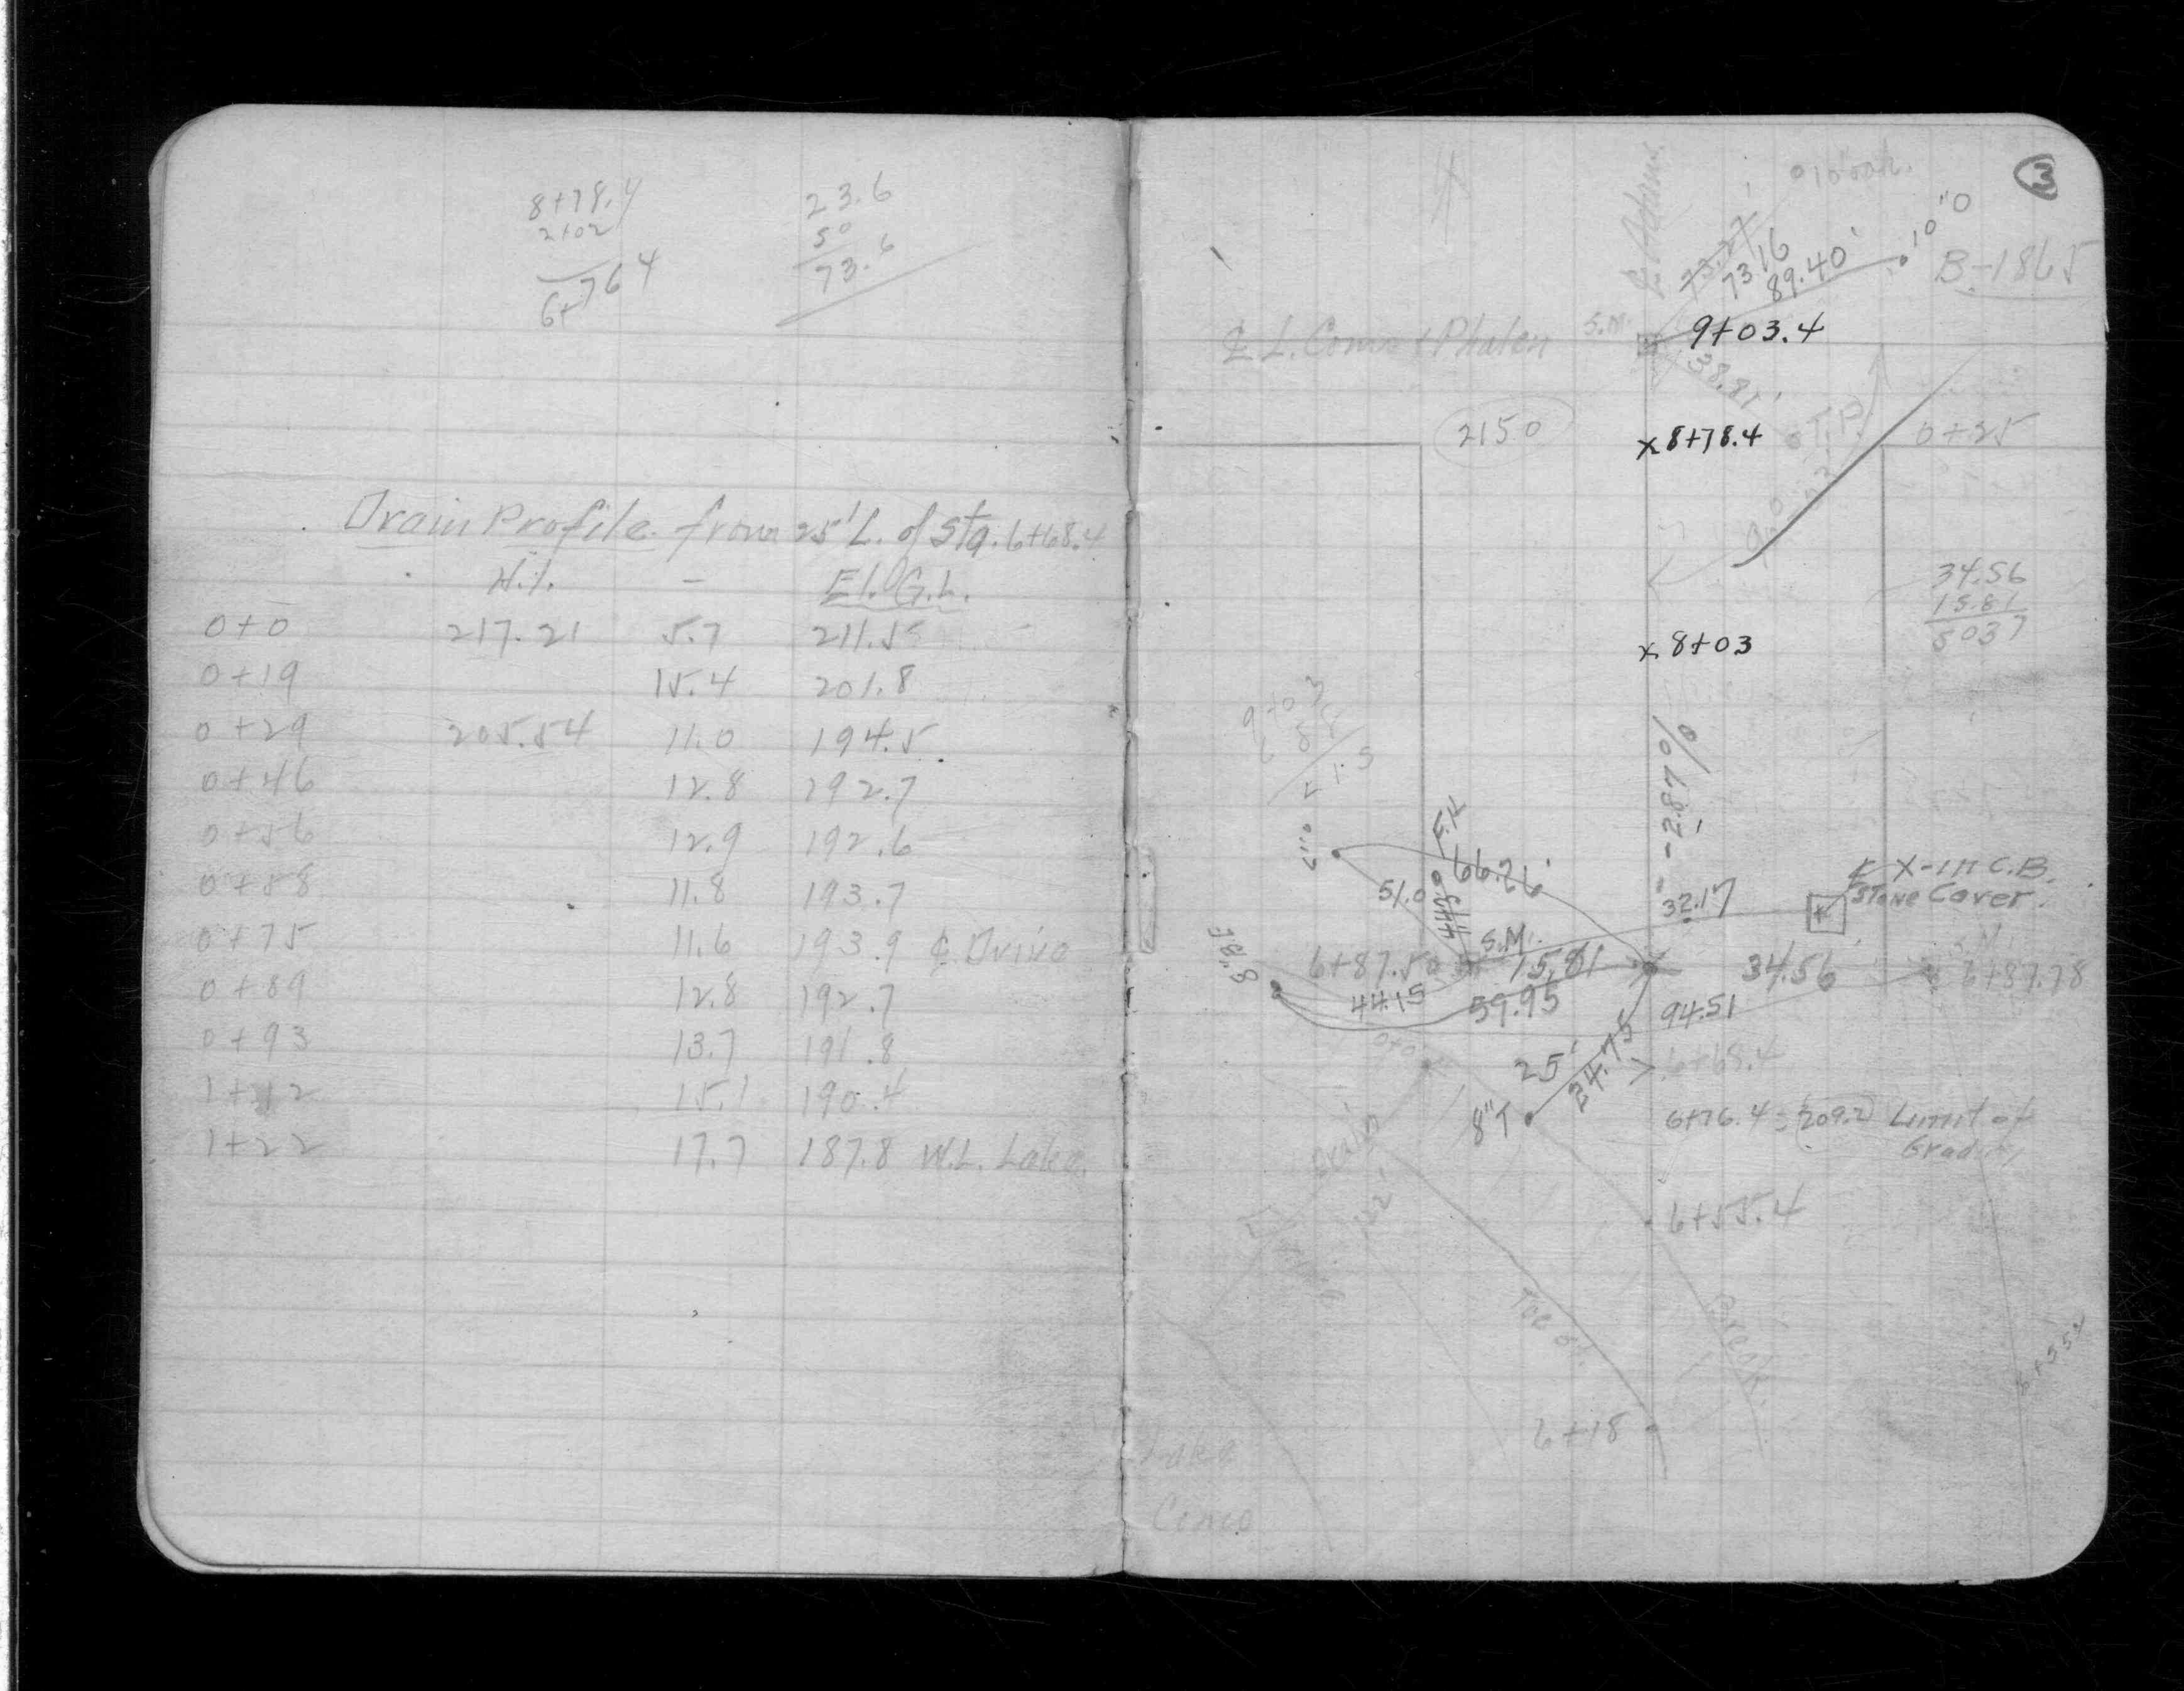 8+78.4
2+02
6+764
23.6
50
73.6
Drain Profile from 25' L. of Sta. 6+68.4
H.I. - El. G.L.
0+0 217.21 5.7 211.5
0+19 15.4 201.8
0+29 205.54 11.0 194.5
0+46 12.8 192.7
0+56 12.9 192.6
0+58 11.8 193.7
0+75 11.6 193.9 ℄ Drive
0+89 12.8 192.7
0+93 13.7 191.8
1+12 15.1 190.4
1+22 17.7 187.8 W.L. Lake
3
10"O
B-1865
73.16
89.40'
S.M.
9+03.4
℄ L. Como & Phalen
38.81'
2150
x 8+78.4
T.P.
0+25
34.56
15.81
5037
x 8+03
9+03
6 88
2 15
-2.87%
7"O
66.26'
51.0
44.3
32.17
X-in C.B.
Stone Cover.
S.M.
6+87.5
15.81
34.56'
S.M.
6+87.78
44.15
59.95
94.51
0+0
25'
24.75
6+68.4
8"T
6+76.4 = 209.2 Limit of
Grading
Drain
122'
6+55.4
Toe of
6+18
Lake
Como